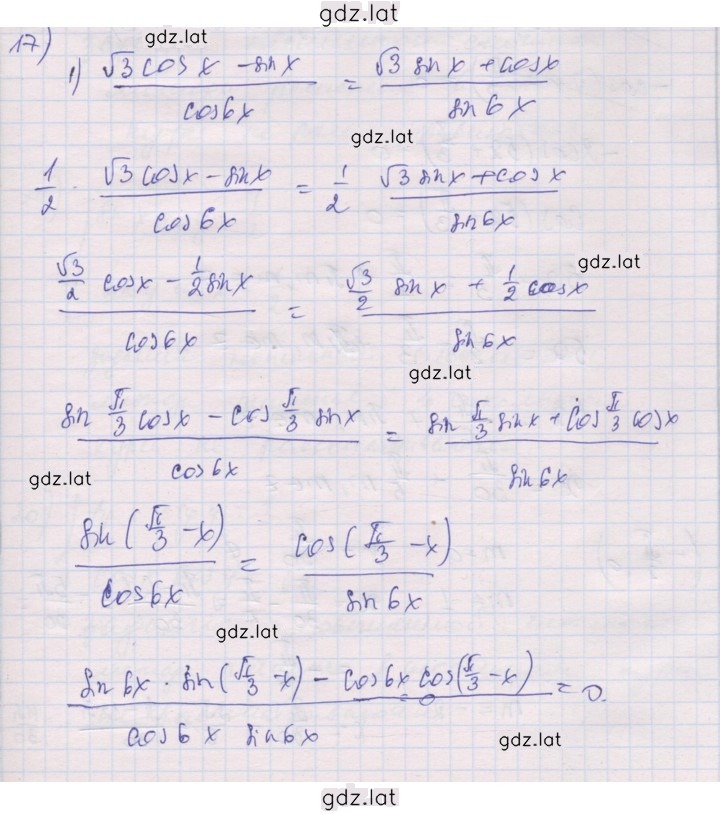 gdz.lat
17) gdz.lat
1) (√3 cos x - sin x)/(cos 6x) = (√3 sin x + cos x)/(sin 6x)
gdz.lat
1/2 · (√3 cos x - sin x)/(cos 6x) = 1/2 (√3 sin x + cos x)/(sin 6x)
gdz.lat
(√3/2 cos x - 1/2 sin x)/(cos 6x) = (√3/2 sin x + 1/2 cos x)/(sin 6x)
gdz.lat
(sin π/3 cos x - cos π/3 sin x)/(cos 6x) = (sin π/3 sin x + cos π/3 cos x)/(sin 6x)
gdz.lat
(sin(π/3 - x))/(cos 6x) = (cos(π/3 - x))/(sin 6x)
gdz.lat
(sin 6x · sin(π/3 - x) - cos 6x cos(π/3 - x))/(cos 6x sin 6x) = 0.
gdz.lat
gdz.lat